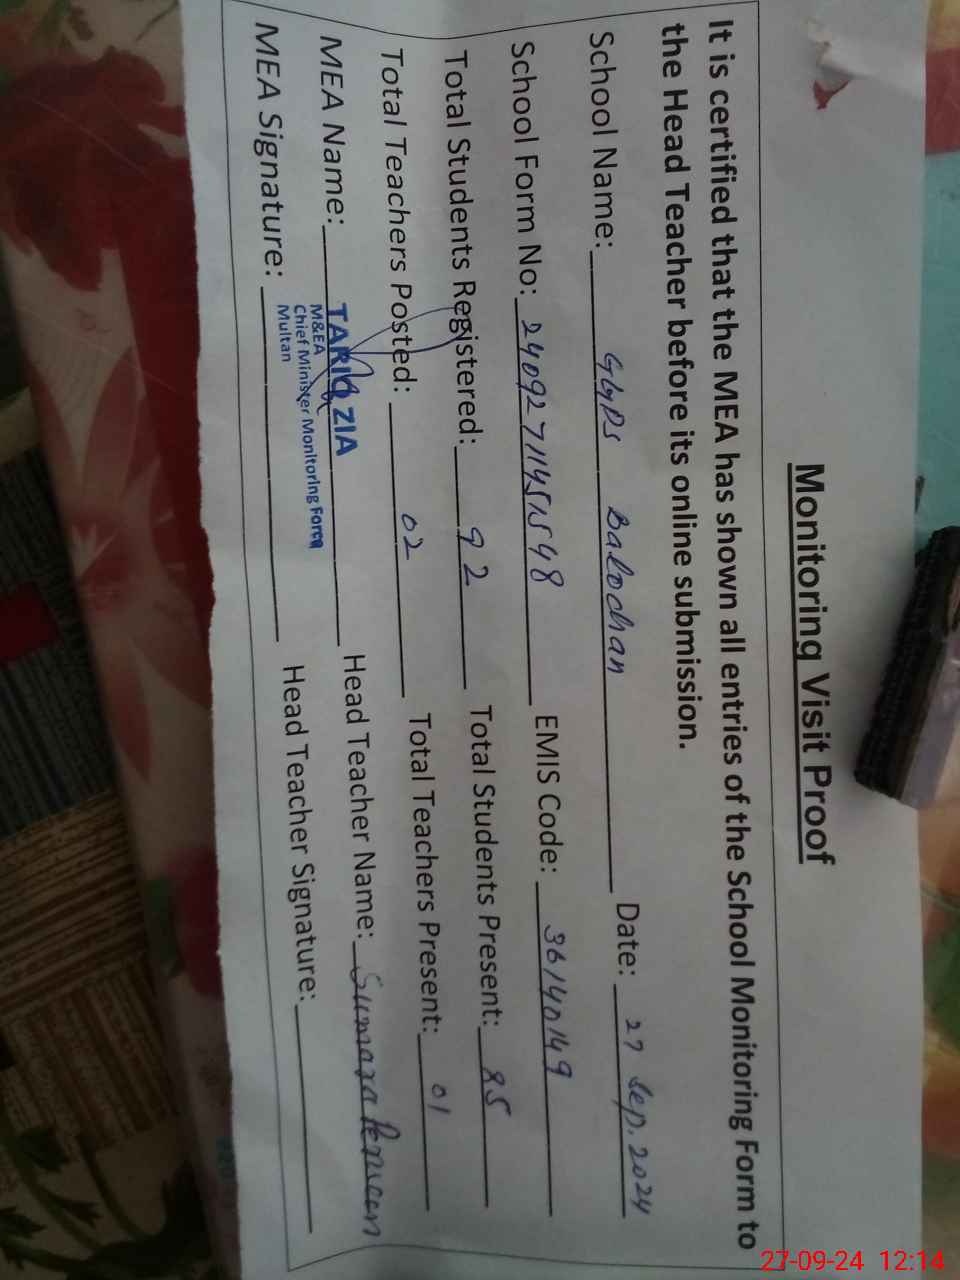 Monitoring Visit Proof
It is certified that the MEA has shown all entries of the School Monitoring Form to
the Head Teacher before its online submission.
School Name: GGPS Balochan Date: 27 Sep. 2024
School Form No: 24092711451548 EMIS Code: 36140149
Total Students Registered: 92 Total Students Present: 85
Total Teachers Posted: 02 Total Teachers Present: 01
MEA Name: TARIQ ZIA Head Teacher Name: Sumara Perveen
M&EA
Chief Minister Monitoring Force
Multan
MEA Signature: Head Teacher Signature:
27-09-24 12:14